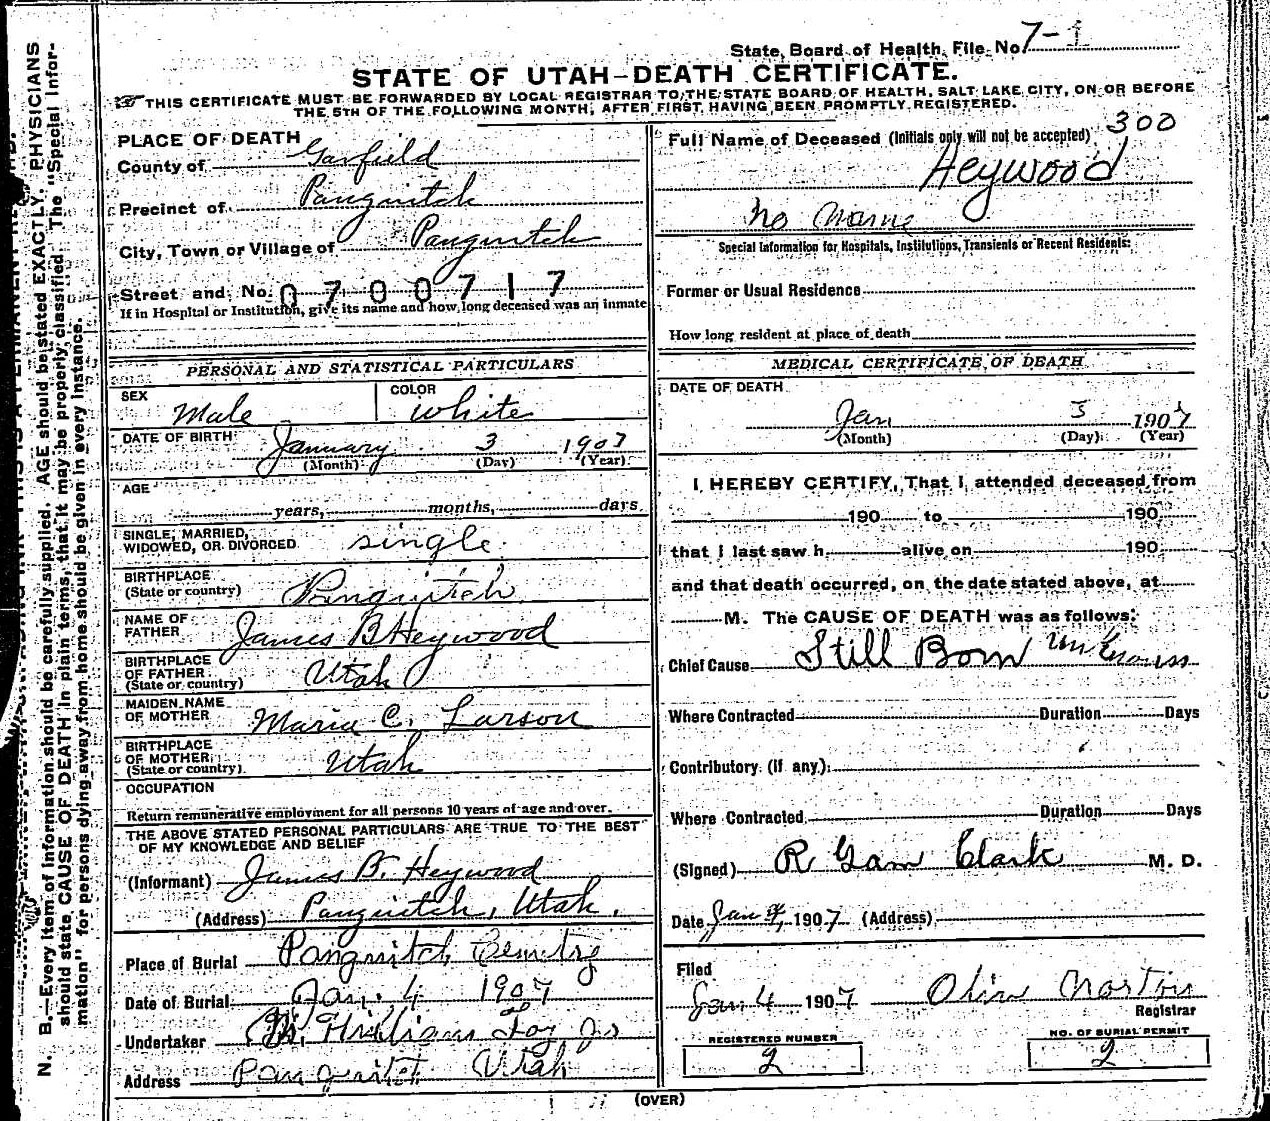 State Board of Health, File No. 7-
STATE OF UTAH—DEATH CERTIFICATE.
THIS CERTIFICATE MUST BE FORWARDED BY LOCAL REGISTRAR TO THE STATE BOARD OF HEALTH, SALT LAKE CITY, ON OR BEFORE
THE 5TH OF THE FOLLOWING MONTH, AFTER FIRST HAVING BEEN PROMPTLY REGISTERED.
PLACE OF DEATH
County of Garfield
Precinct of Panguitch
City, Town or Village of Panguitch
Street and No. 0700717
If in Hospital or Institution, give its name and how long deceased was an inmate
PERSONAL AND STATISTICAL PARTICULARS
SEX COLOR
Male White
DATE OF BIRTH January 3 1907
(Month) (Day) (Year)
AGE
years, months, days
SINGLE, MARRIED,
WIDOWED, OR DIVORCED single
BIRTHPLACE
(State or country) Panguitch
NAME OF
FATHER James B Heywood
BIRTHPLACE
OF FATHER
(State or country) Utah
MAIDEN NAME
OF MOTHER Maria C. Larson
BIRTHPLACE
OF MOTHER
(State or country) Utah
OCCUPATION
Return remunerative employment for all persons 10 years of age and over.
THE ABOVE STATED PERSONAL PARTICULARS ARE TRUE TO THE BEST
OF MY KNOWLEDGE AND BELIEF
(Informant) James B. Heywood
(Address) Panguitch, Utah.
Place of Burial Panguitch Cemetry
Date of Burial Jan. 4 1907
Undertaker
Address Panguitch Utah
300
Full Name of Deceased (Initials only will not be accepted)
Heywood
No Name
Special Information for Hospitals, Institutions, Transients or Recent Residents:
Former or Usual Residence
How long resident at place of death
MEDICAL CERTIFICATE OF DEATH
DATE OF DEATH
Jan 3 1907
(Month) (Day) (Year)
I HEREBY CERTIFY, That I attended deceased from
190 to 190
that I last saw h alive on 190
and that death occurred, on the date stated above, at
M. The CAUSE OF DEATH was as follows:
Chief Cause Still Born
Where Contracted Duration Days
Contributory (if any)
Where Contracted Duration Days
(Signed) R Garn Clark M. D.
Date Jan 4, 1907 (Address)
Filed
Jan 4 1907 Olin Norton
Registrar
REGISTERED NUMBER NO. OF BURIAL PERMIT
2 2
(OVER)
N. B.—Every item of information should be carefully supplied. AGE should be stated EXACTLY. PHYSICIANS
should state CAUSE OF DEATH in plain terms, that it may be properly classified. The "Special Infor-
mation" for persons dying away from home should be given in every instance.